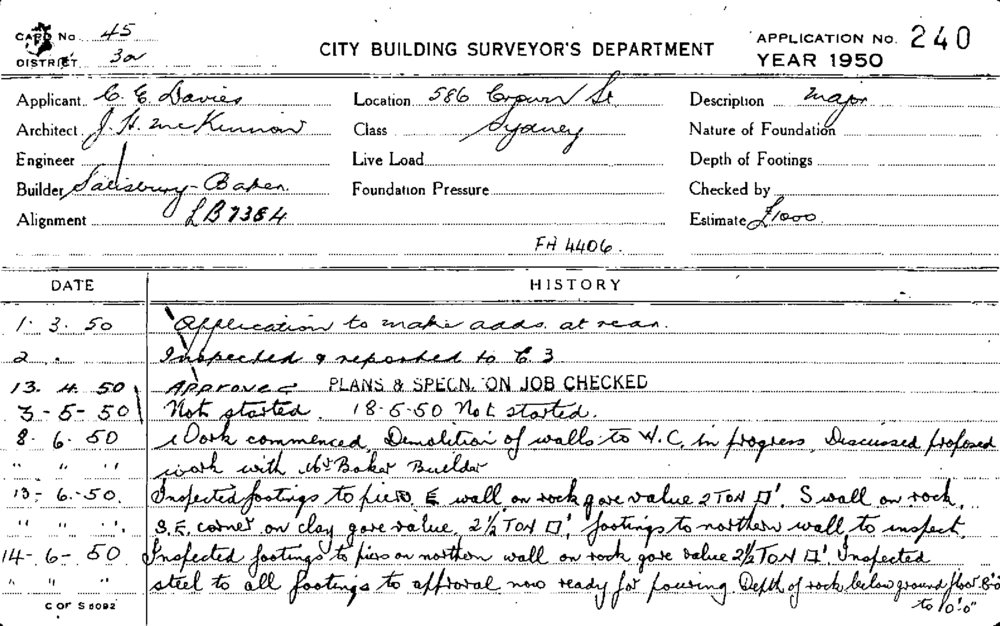 CARD No 45
DISTRICT 3a
CITY BUILDING SURVEYOR'S DEPARTMENT
APPLICATION No. 240
YEAR 1950
Applicant C. E. Davies Location 586 Crown St Description major
Architect J. H. McKinnon Class Sydney Nature of Foundation
Engineer Live Load Depth of Footings
Builder Salisbury-Baker. Foundation Pressure Checked by
Alignment LB7384 Estimate £1000
FH 4406.
DATE HISTORY
1. 3. 50 Application to make adds. at rear.
2 " Inspected & reported to C 3
13. 4. 50 APPROVED PLANS & SPECN. ON JOB CHECKED
3-5-50 Not started. 18-5-50 Not started.
8. 6. 50 Work commenced. Demolition of walls to W.C. in progress. Discussed proposed
" " " work with Mr Baker Builder
13-6-50. Inspected footings to piers E wall on rock gave value 2 TON □'. S wall on rock.
" " ". S.E. corner on clay gave value, 2½ TON □'. footings to northern wall to inspect.
14-6-50 Inspected footings to piers on northern wall on rock gave value 2½ TON □'. Inspected
" " " steel to all footings to approval now ready for pouring. Depth of rock below ground floor 8'0"
to 10'0"
C OF S 6092